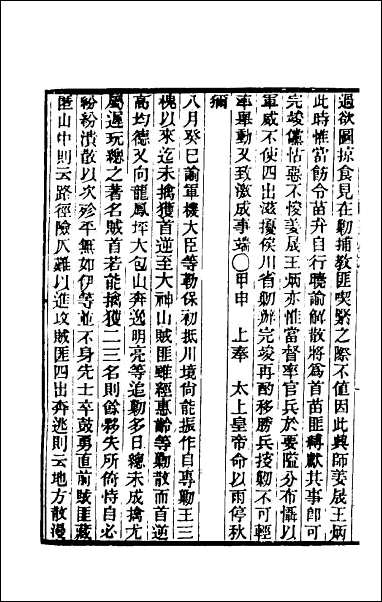 過欲圖掠食見在勦捕教匪喫緊之際不值因此興師姜晟王炳
此時惟當飭令苗弁自行曉諭解散將爲首苗匪縛獻其事卽可
完竣儻怙惡不悛姜晟王炳亦惟當督率官兵於要隘分布懾以
軍威不使四出滋擾俟川省勦辦完竣再酌移勝兵技勦不可輕
率舉動又致激成事端〇甲申　上奉　太上皇帝命以雨停秋
獮
八月癸巳諭軍機大臣等勒保初抵川境尙能振作自專勦王三
槐以來迄未擒獲首逆至大神山賊匪雖經惠齡等勦散而首逆
高均德又向龍鳳坪大包山奔逸明亮等追勦多日總未成擒尤
屬遲玩總之著名賊首若能擒獲二三名則餘夥失所倚恃自必
紛紛潰散以次殄平無如伊等並不身先士卒鼓勇直前賊匪藏
匿山中則云路徑險仄難以進攻賊匪四出奔逃則云地方散漫